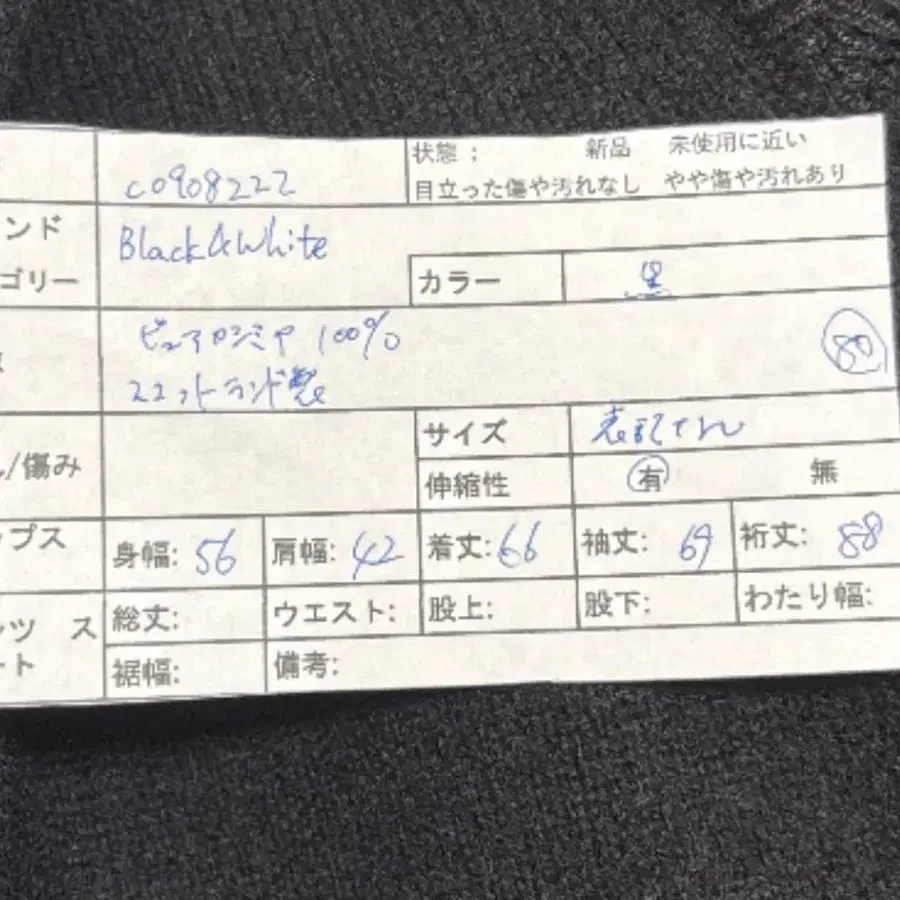 c0908222
状態： 新品 未使用に近い
目立った傷や汚れなし やや傷や汚れあり
ンド
Black&White
ゴリー
カラー 黒
ピュアカシミヤ 100%
スコットランド製
80
サイズ 表記なし
/傷み
伸縮性 有 無
ップス
身幅: 56 肩幅: 42 着丈: 66 袖丈: 69 裄丈: 88
ツ ス
総丈: ウエスト: 股上: 股下: わたり幅:
ート
裾幅: 備考: